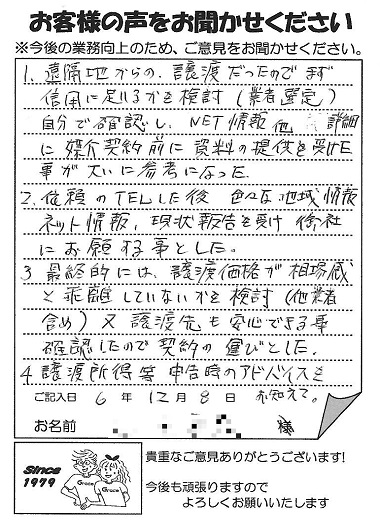 お客様の声をお聞かせください
※今後の業務向上のため、ご意見をお聞かせください。
1. 遠隔地からの、譲渡だったのでまず
信用に足いるかを検討（業者選定）
自分で確認し、NET情報他 詳細
に媒介契約前に資料の提供を受けた
事が大いに参考になった
2. 依頼のTELした後 色々な地域情報
ネット情報、現状報告を受け 御社
にお願する事とした。
3 最終的には、譲渡価格が相場感
と乖離していないかを検討（他業者
含め）又譲渡先も安心できる事
確認したので契約の運びとした。
4. 譲渡所得等申告時のアドバイスも
お知えて。
ご記入日 6 年 12 月 8 日
お名前 様
Since
1979
Grace
Grace
貴重なご意見ありがとうございます!
今後も頑張りますので
よろしくお願いいたします